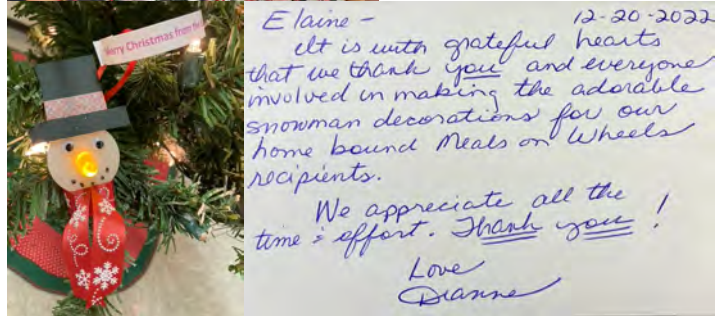 Merry Christmas from
Elaine - 12-20-2022
It is with grateful hearts
that we thank you and everyone
involved in making the adorable
snowman decorations for our
home bound Meals on Wheels
recipients.
We appreciate all the
time & effort. Thank you!
Love
Dianne